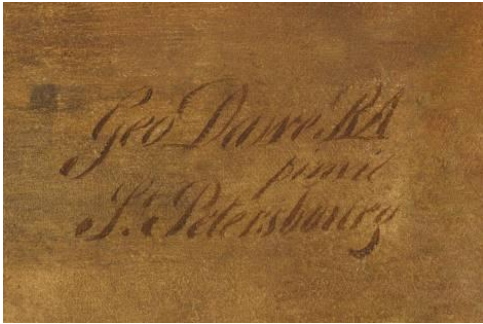 Geo Dawe RA
pinxit
St. Petersbourg